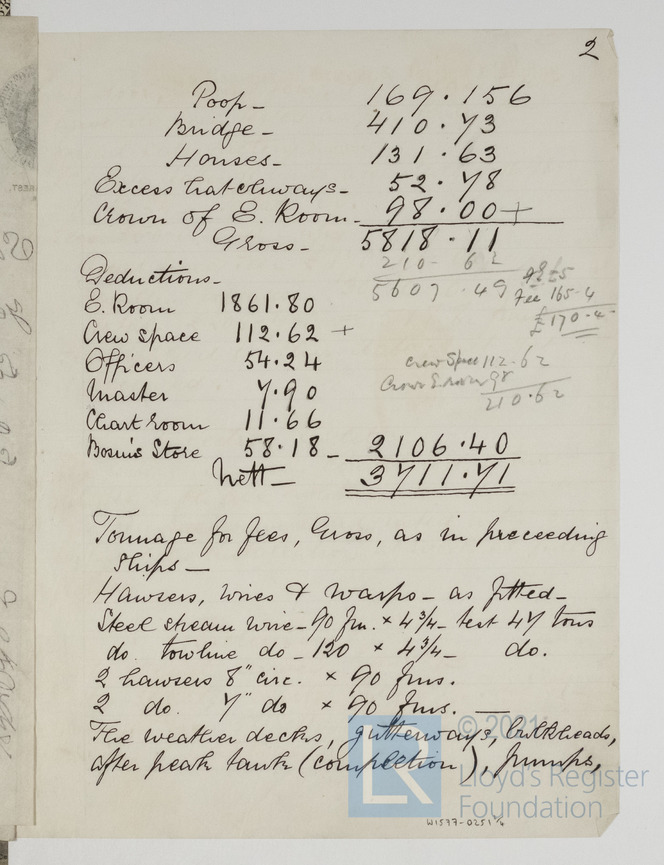 2
Poop - 169.156
Bridge - 410.73
Houses - 131.63
Excess hatchways - 52.78
Crown of E. Room - 98.00 +
Gross - 5818.11
210 - 62
5607.49
Fee 165-4
£170-4-
Deductions -
E. Room 1861.80
Crew space 112.62 +
Officers 54.24
Master 7.90
Chart room 11.66
Bosun's Store 58.18 - 2106.40
Nett - 3711.71
Crew Space 112.62
Crown E. Room 98
210.62
Tonnage for fees, Gross, as in preceeding
Ships -
Hawsers, wires & warps - as fitted -
Steel stream wire - 90 fm. × 4 3/4 - test 47 tons
do. towline do - 120 × 4 3/4 - do.
2 hawsers 8" circ. × 90 fms.
2 do. 7" do × 90 fms. —
The weather decks, gutterways, bulkheads,
after peak tank (completion), pumps,
© 2021
LR
Lloyd's Register
Foundation
W1577-0251 1/4